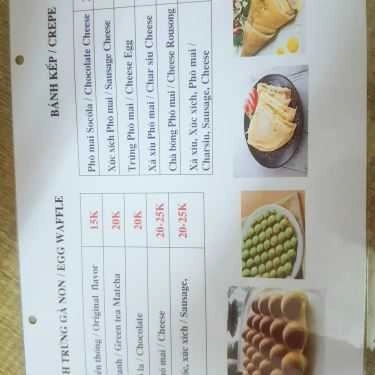 BÁNH KẸP / CREPE
Phô mai Socola / Chocolate Cheese
Xúc xích Phô mai / Sausage Cheese
Trứng Phô mai / Cheese Egg
Xá xíu Phô mai / Char siu Cheese
Chà bông Phô mai / Cheese Rousong
Xá xíu, Xúc xích, Phô mai /
Charsiu, Sausage, Cheese
H TRỨNG GÀ NON / EGG WAFFLE
ền thống / Original flavor 15K
anh / Green tea Matcha 20K
la / Chocolate 20K
ô mai / Cheese 20-25K
ốc, xúc xích / Sausage, 20-25K